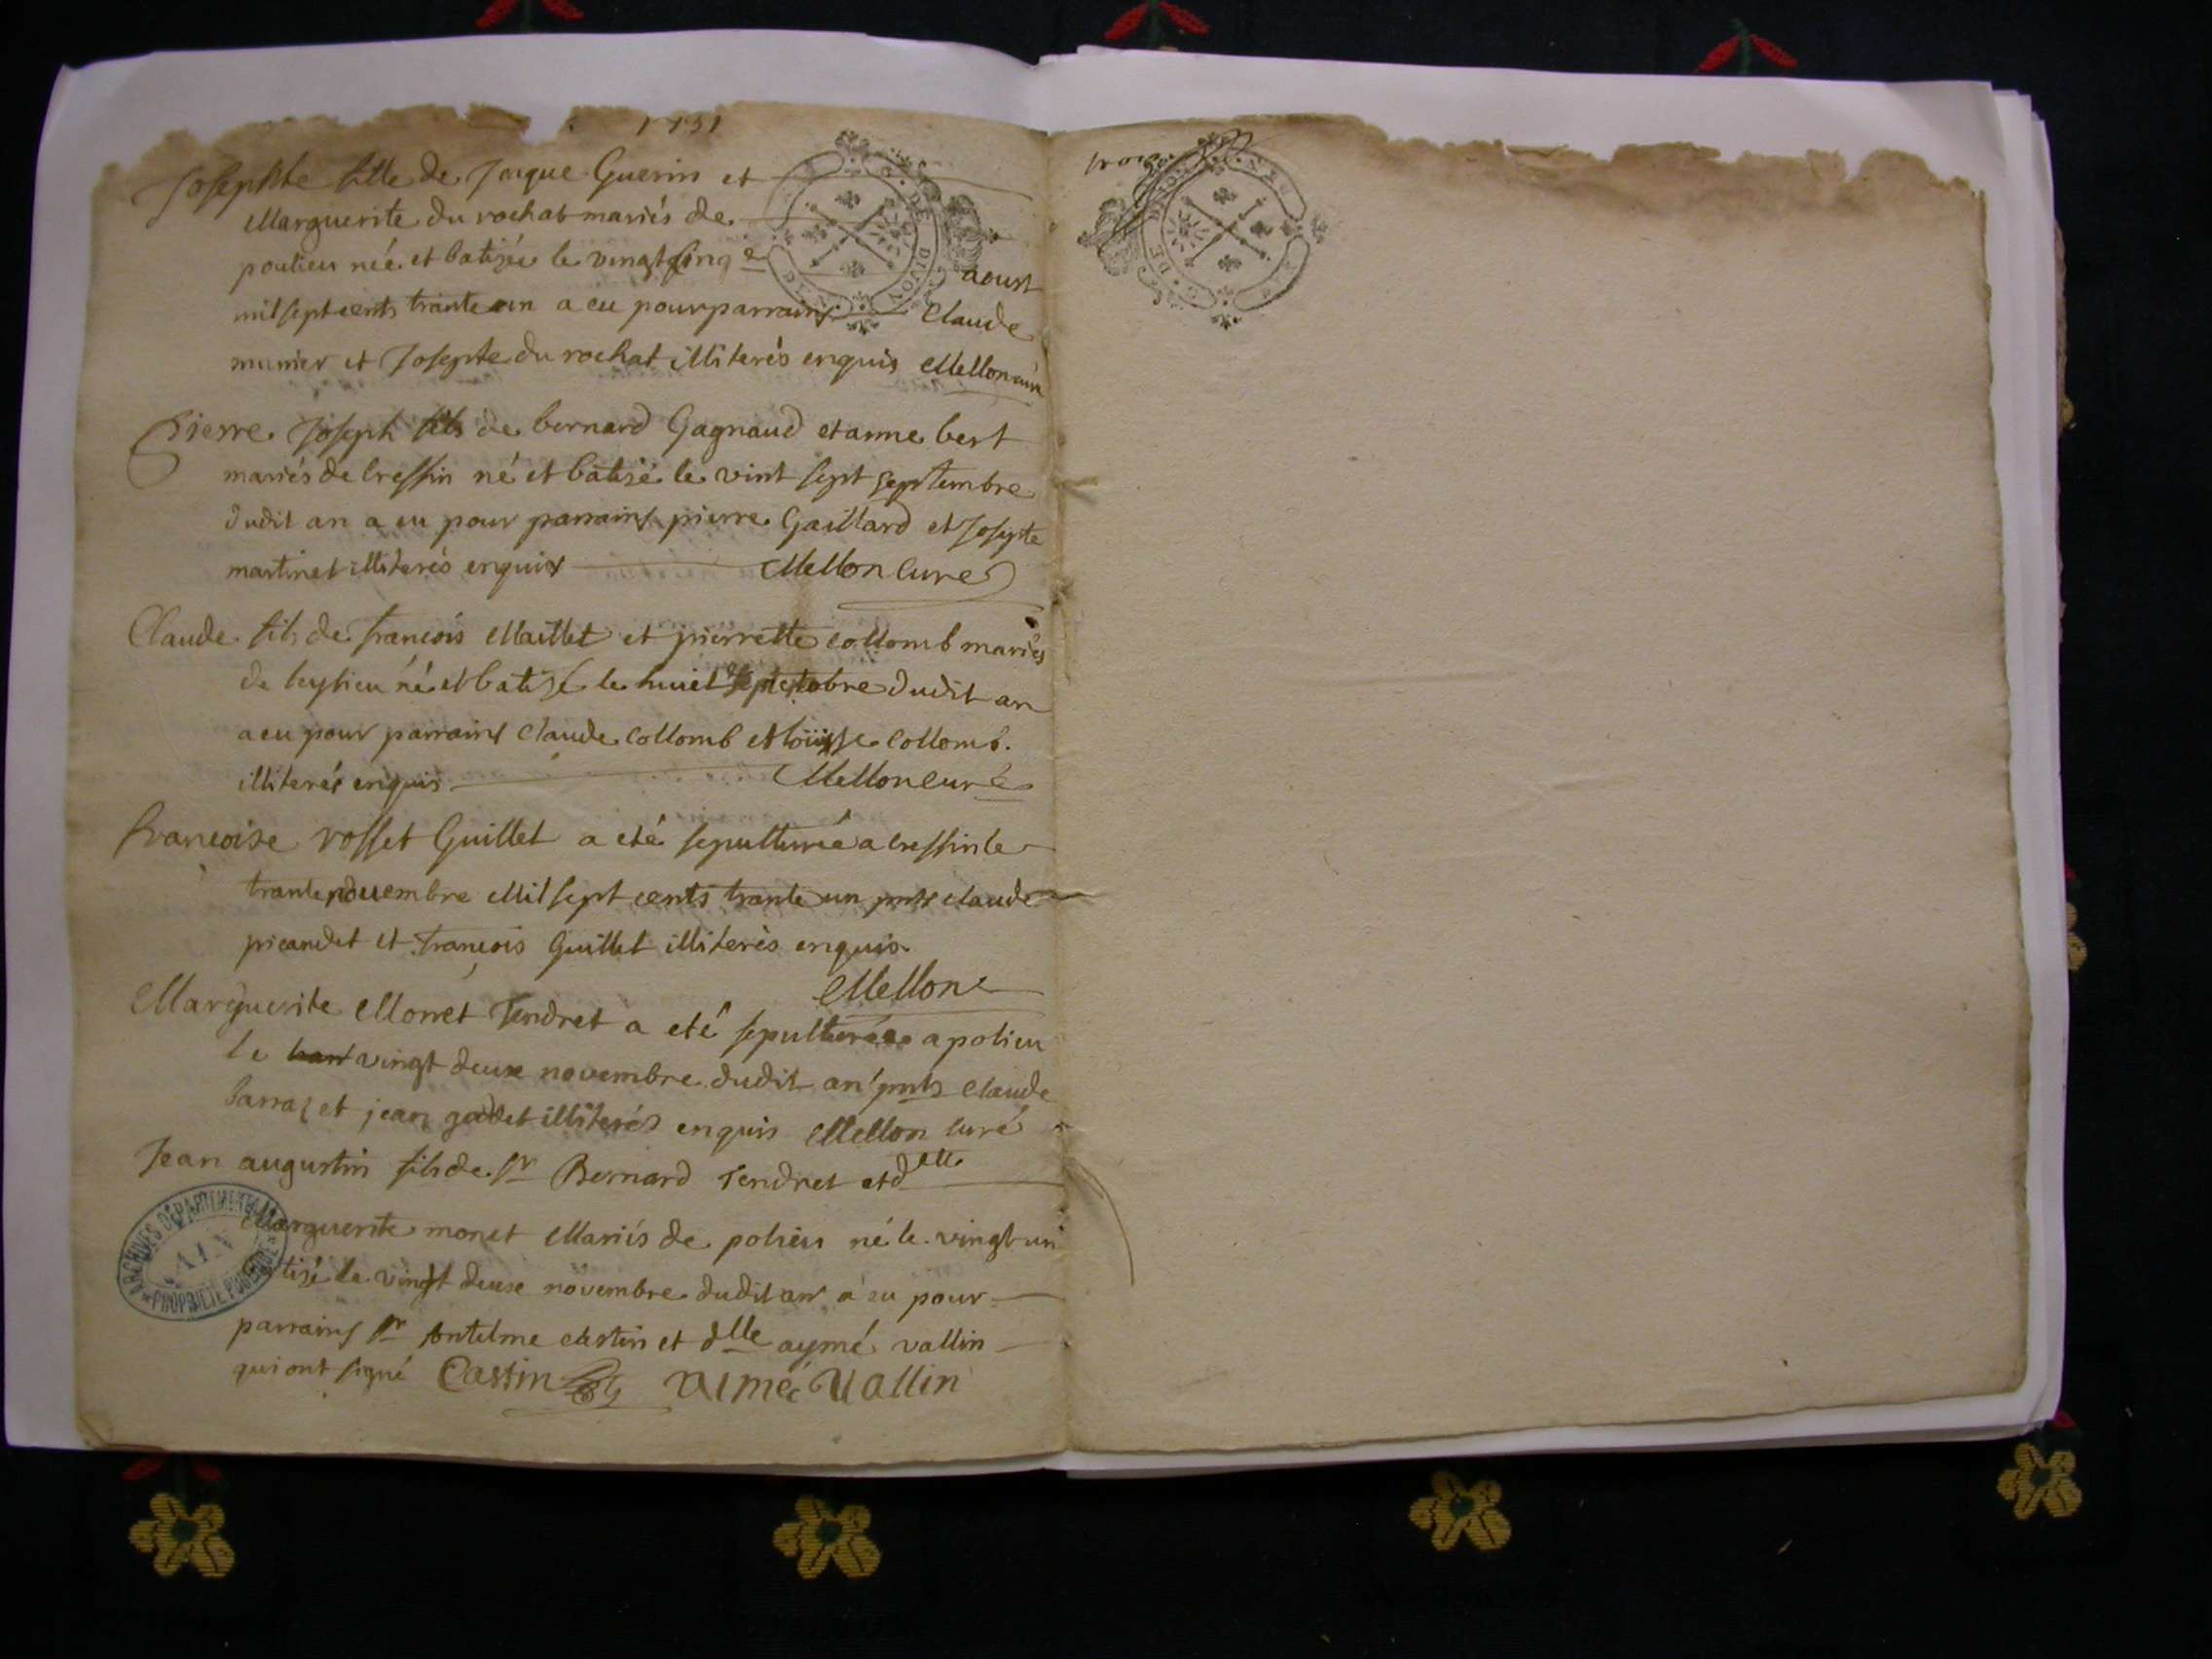 1731
Josephte fille de Jaque Guerin et
Marguerite du rochat mariés de
poulieu née et batisée le vingt cinq e aoust
mil sept cents trante un a eu pour parrains Claude
munier et Josepte du rochat illiterés enquis Mellon curé
Pierre Joseph fils de bernard Gagnaud et anne bert
mariés de Cressin né et batisé le vint sept septembre
dudit an a eu pour parrains pierre Gaillard et Josepte
martinet illiterés enquis Mellon Curé
Claude fils de francois Maillet et pierrette collomb mariés
de leysieu né et batisé le huict octobre dudit an
a eu pour parrains Claude Collomb et loüisse Collomb.
illiterés enquis Mellon Curé
francoise rosset Guillet a eté sepulturée a cressin le
trante novembre Mil sept cents trante un pnts claude
picandet et francois Guillet illiterés enquis.
Mellon
Marguerite Monet Tendret a eté sepulturée a polieu
le vingt deux novembre dudit an pnts Claude
barraz et jean godet illiterés enquis Mellon Curé
Jean augustin fils de Sr Bernard Tendret et delle
Marguerite monet Mariés de polieu né le vingt un
batisé le vingt deux novembre dudit an a eu pour
parrains Sr Antelme Castin et dlle aymé vallin
qui ont signé Cassin aimée Vallin
ARCHIVES DÉPARTEMENTALES
AIN
PROPRIÉTÉ PUBLIQUE
trois
G. DE DIJON